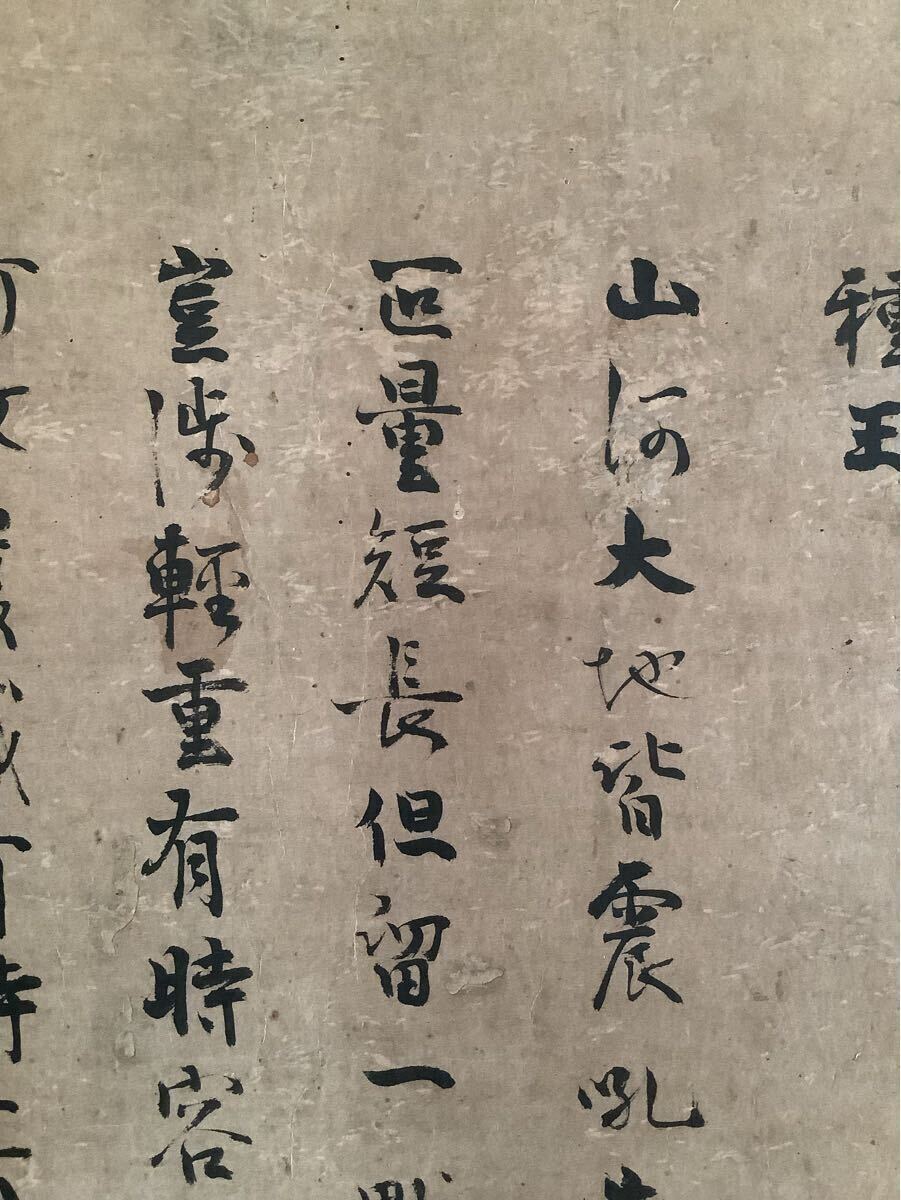 種王
山河大地皆震吼
叵量短長但留一
豈涉輕重有時容